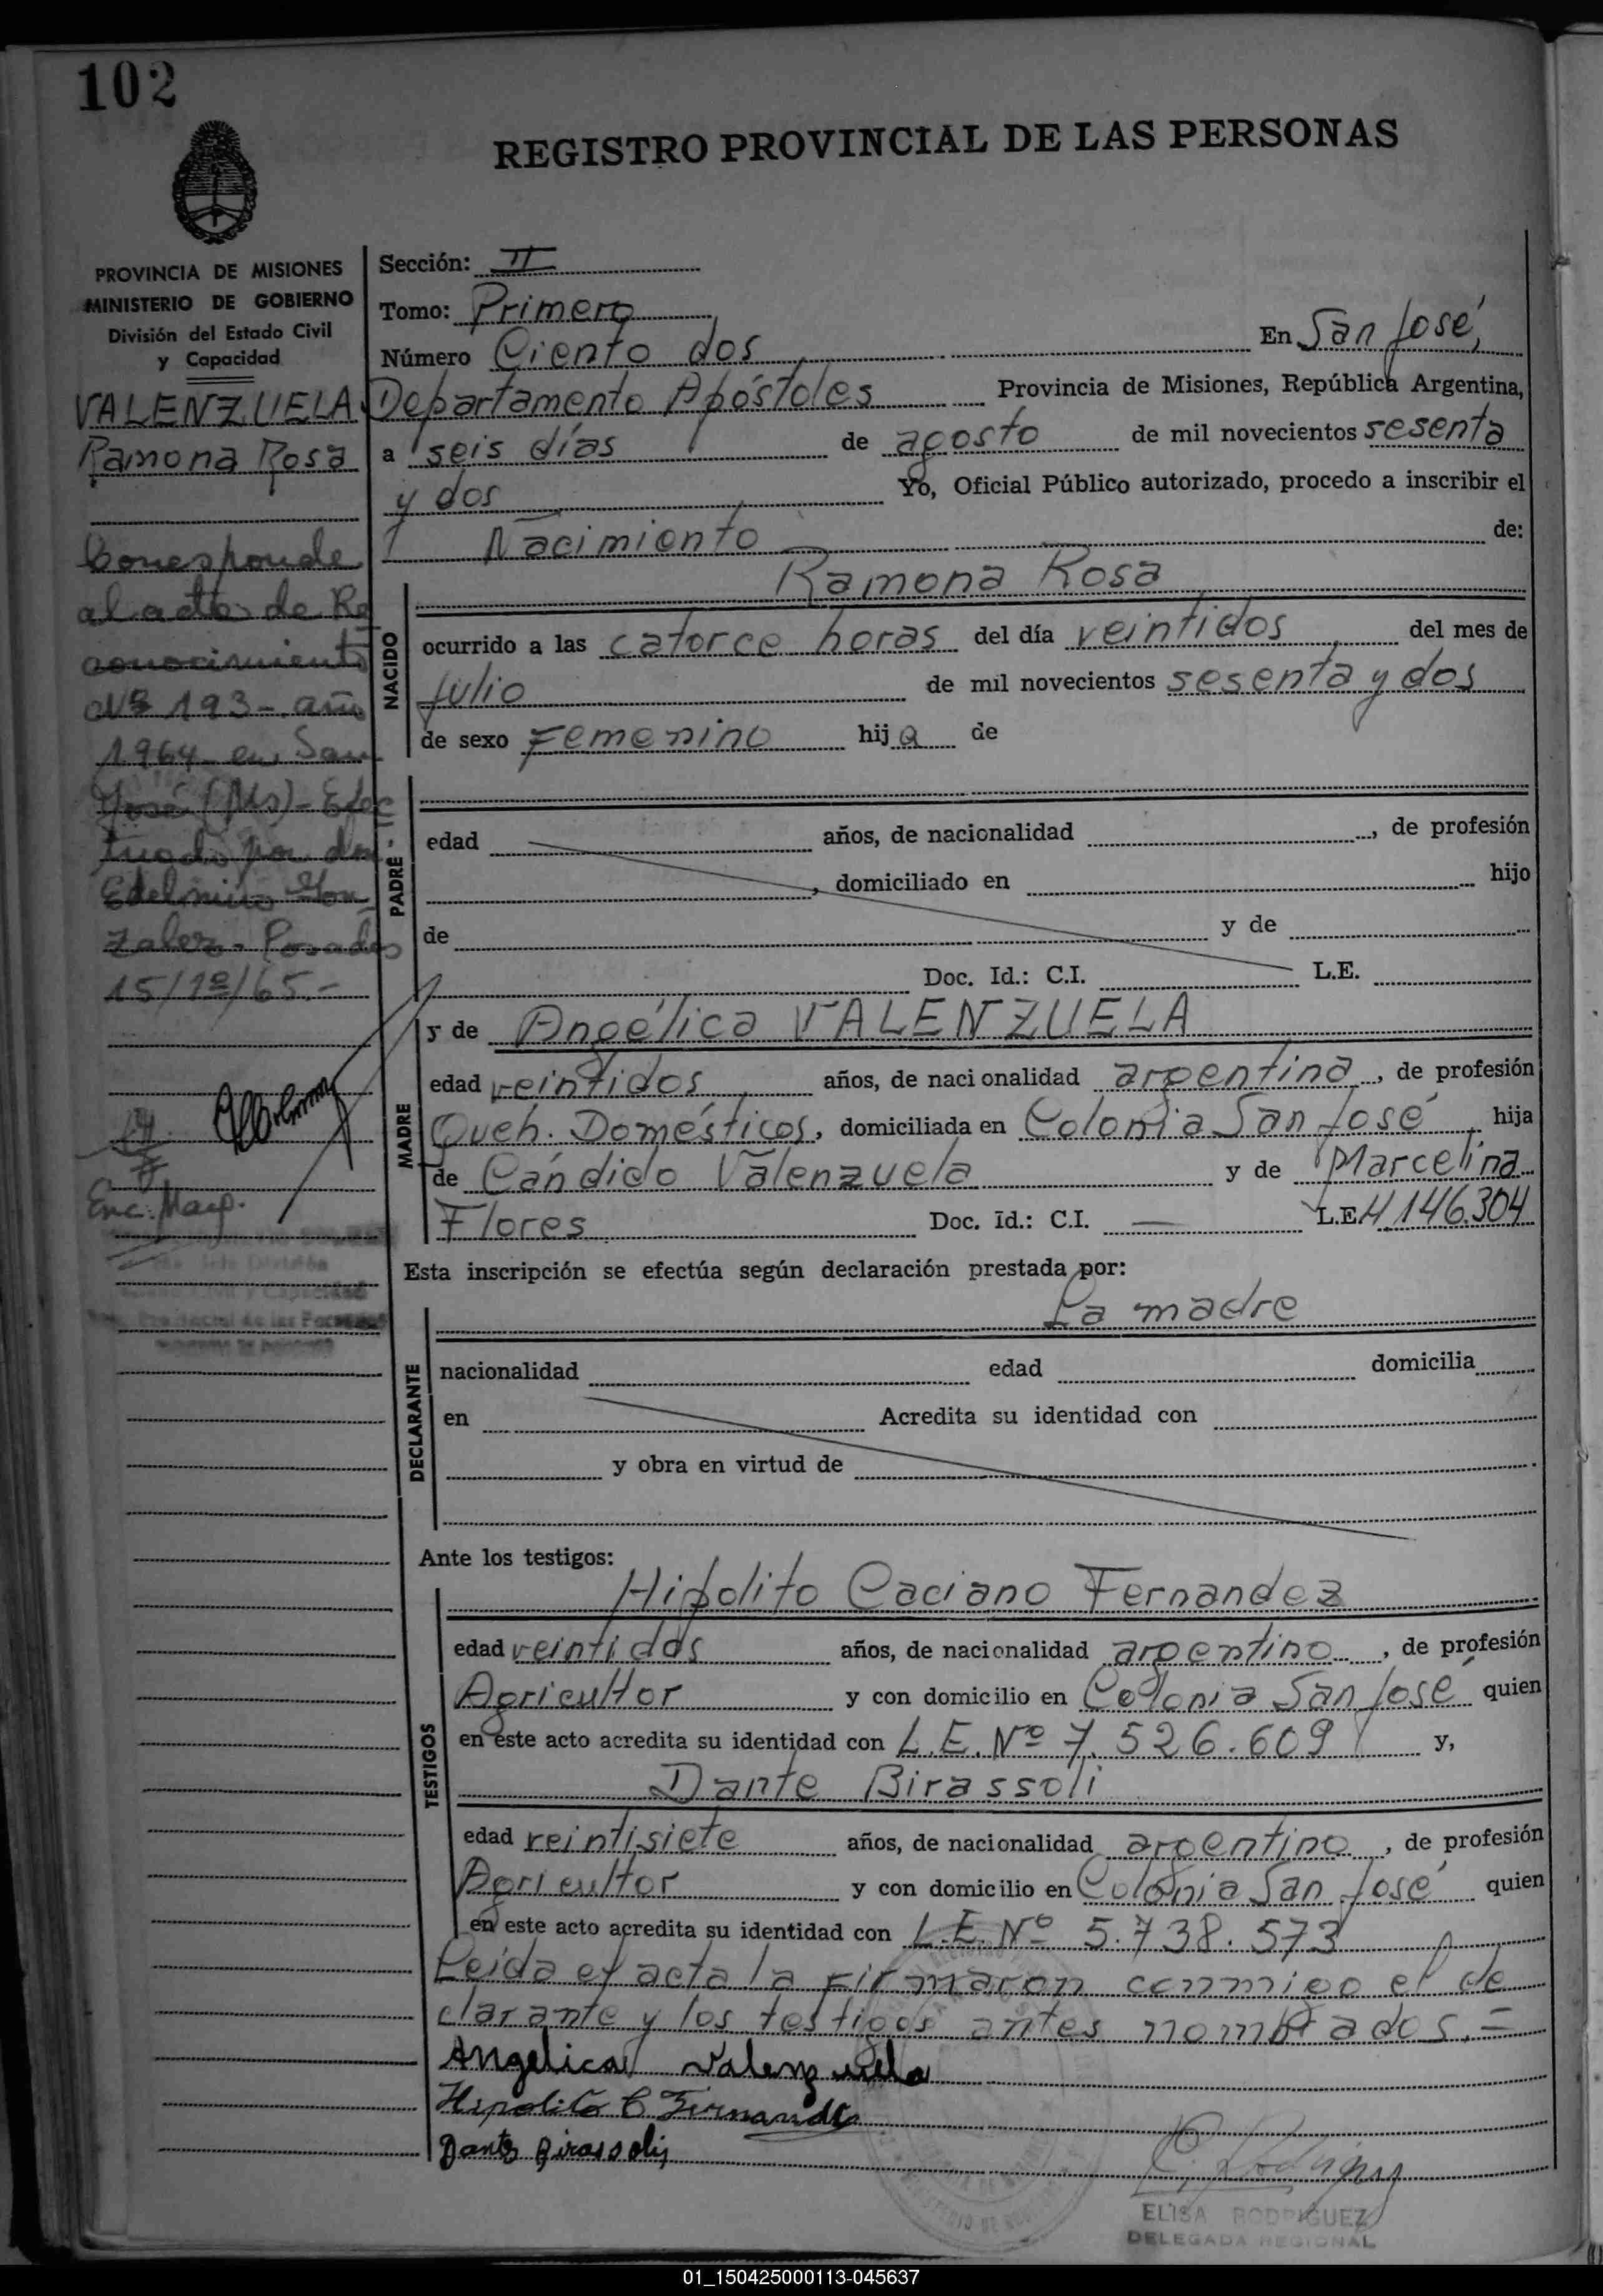 102
REGISTRO PROVINCIAL DE LAS PERSONAS
PROVINCIA DE MISIONES
MINISTERIO DE GOBIERNO
División del Estado Civil
y Capacidad
VALENZUELA
Ramona Rosa
Corresponde
al acto de Re
conocimiento
Nº 193 - año
1964 - en San
José (Ms) - Efec
tuado por don
Edelmiro Gon
zalez - Posadas
15/12/65.-
Enc. Mayo.
Sección: II
Tomo: Primero
Número Ciento dos En San José,
Departamento Apóstoles Provincia de Misiones, República Argentina,
a seis días de agosto de mil novecientos sesenta
y dos Yo, Oficial Público autorizado, procedo a inscribir el
Nacimiento de:
Ramona Rosa
NACIDO
ocurrido a las catorce horas del día veintidos del mes de
julio de mil novecientos sesenta y dos
de sexo Femenino hija de
PADRE
edad años, de nacionalidad , de profesión
, domiciliado en hijo
de y de
Doc. Id.: C.I. L.E.
MADRE
y de Angélica VALENZUELA
edad veintidos años, de nacionalidad argentina, de profesión
Queh. Domésticos, domiciliada en Colonia San José, hija
de Cándido Valenzuela y de Marcelina
Flores Doc. Id.: C.I. — L.E. 4.146.304
Esta inscripción se efectúa según declaración prestada por:
La madre
DECLARANTE
nacionalidad edad domicilia
en Acredita su identidad con
y obra en virtud de
Ante los testigos:
Hipolito Caciano Fernandez
TESTIGOS
edad veintidos años, de nacionalidad argentino, de profesión
Agricultor y con domicilio en Colonia San José quien
en este acto acredita su identidad con L.E. Nº 7.526.609 y,
Dante Birassoli
edad veintisiete años, de nacionalidad argentino, de profesión
Agricultor y con domicilio en Colonia San José quien
en este acto acredita su identidad con L.E. Nº 5.738.573
Leida el acta la firmaron conmigo el de
clarante y los testigos antes nombrados.=
Angelica Valenzuela
Hipolito C Fernandez
Dante Birassoli
ELISA RODRIGUEZ
DELEGADA REGIONAL
01_150425000113-045637